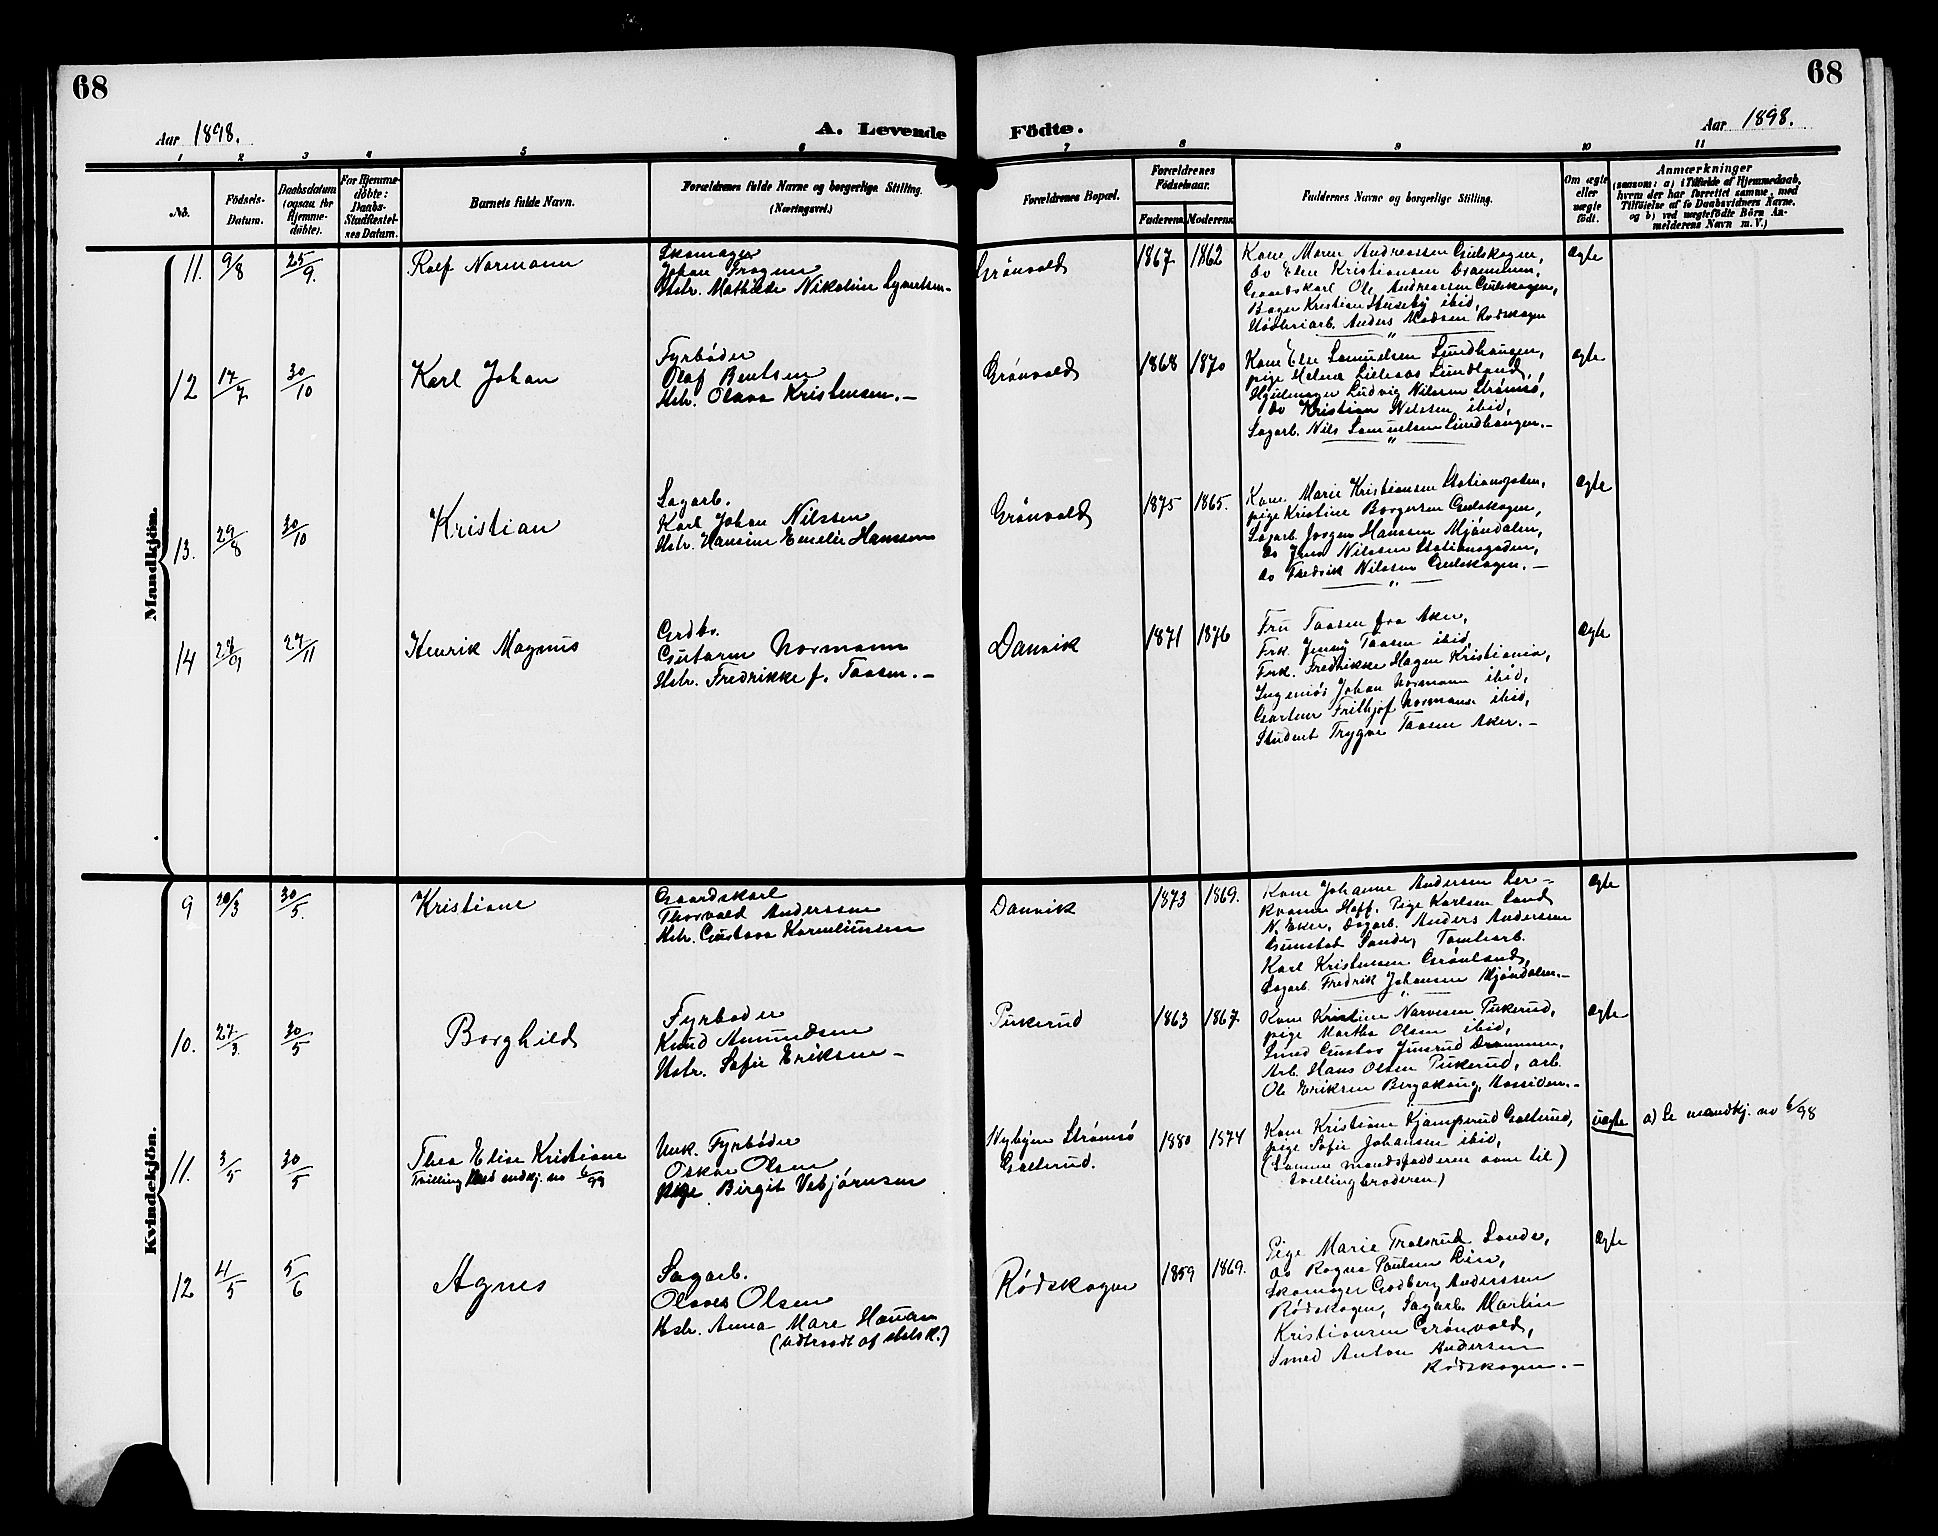 68
68
Aar 1898.
A. Levende Födte.
Aar 1898.
1 2 3 4 5 6 7 8 9 10 11
No.
Födsels-Datum.
Daabsdatum (ogsaa for Hjemme-döbte).
For Hjemme-döbte: Daabs-Stadfæstel-ses Datum.
Barnets fulde Navn.
Forældrenes fulde Navne og borgerlige Stilling. (Næringsvei.)
Forældrenes Bopæl.
Forældrenes Födselsaar.
Faderens. Moderens.
Faddernes Navne og borgerlige Stilling.
Om ægte eller uægte födt.
Anmærkninger
(saasom: a) i Tilfælde af Hjemmedaab, hvem der har forrettet samme, med Tilföielse af to Daabsvidners Navne, og b) ved uægtefödte Börn An-melderens Navn m. V.)
Mandkjön.
11. 9/8 25/9. Rolf Normann
Skomager
Johan Frogner
Hstr. Mathilde Nikoline Syvertsen.-
Grønvold 1867 1862
Kone Maren Andreassen Gulskogen,
do Elen Kristiansen Drammen,
Gaardskarl Ole Andreassen Gulskogen,
Bager Kristian Huseby ibid,
Uøderiarb. Anders Madsen Rødskogen
ægte
12 17/7 30/10 Karl Johan
Fyrbøder
Olaf Bentsen
Hstr. Olava Kristensen.-
Grønvold 1868 1870
Kone Else Samuelsen Sundhaugen,
pige Helene Lilleaas Sundland,
Hjulmager Ludvig Nilsen Strømsø,
do Kristian Nilssen ibid,
Sagarb. Nils Samuelsen Sundhaugen.-
ægte
13. 29/8 30/10 Kristian
Sagarb.
Karl Johan Nilssen
Hstr. Hansine Emelie Hanssen
Grønvold 1875 1865.
Kone Marie Kristiansen Stationsgaden,
pige Kristine Borgersen Gulskogen,
Sagarb. Jørgen Hanssen Mjøndalen,
do Jens Nilssen Stationsgaden,
do Fredrik Nilssen Gulskogen.-
ægte
14 27/9 27/11 Henrik Magnus
Grdbr.
Guttorm Normann
Hstr. Fredrikke f. Taasen.-
Danvik 1871 1876
Fru Taasen fra Aker,
Frk. Jenny Taasen ibid,
Frk. Fredrikke Hagen Kristiania,
Ingeniør Johan Normann ibid,
Gartner Frithjof Normann ibid,
Student Trygve Taasen Aker.-
ægte
Kvindekjön.
9 20/3 30/5. Kristiane
Gaardskarl
Thorvald Anderssen
Hstr. Gustava Korneliussen
Danvik 1873 1869.
Kone Johanne Andersen Ler-
kvamn Hoff, Pige Karlsen Sand
N. Eker, Dagarb. Anders Anderssen
Gunstad Sande, Tomtearb.
Karl Kristensen Grønland,
Sagarb. Fredrik Johansen Mjøndalen.-
ægte
10. 27/3. 30/5 Borghild
Fyrbøder
Knud Amundsen
Hstr. Sofie Eriksen-
Pukerud 1863 1867
Kone Kristine Narvesen Pukerud,
pige Martha Olsen ibid,
Smed Gustav Junsrud Drammen,
Arb. Hans Olsen Pukerud, arb.
Ole Eriksen Bergskaug, Aassiden.-
ægte
11. 3/5 30/5 Thea Elise Kristiane
Tvilling med mdkj. no 6/98
Unk. Fyrbøder
Oskar Olsen
Pige Birgit Vebjørnsen
Nybyen Strømsø
Galterud.
1880 1874
Kone Kristiane Kjampsrud Galterud,
pige Sofie Johansen ibid,
(Samme mandsfadderne som til
tvillingbroderen)
uægte
a) Se mandkj. no 6/98
12 4/5 5/6 Agnes
Sagarb.
Olaves Olsen
Hstr. Anna Mare Hansen
(udtraadt af statsk.)
Rødskogen 1859 1869.
Pige Marie Trolsrud Sande,
do Ragna Paulsen Lier,
Skomager Godberg Anderssen
Rødskogen, Sagarb. Martin
Kristiansen Grønvold,
Smed Anton Andersen
Rødskogen.-
ægte